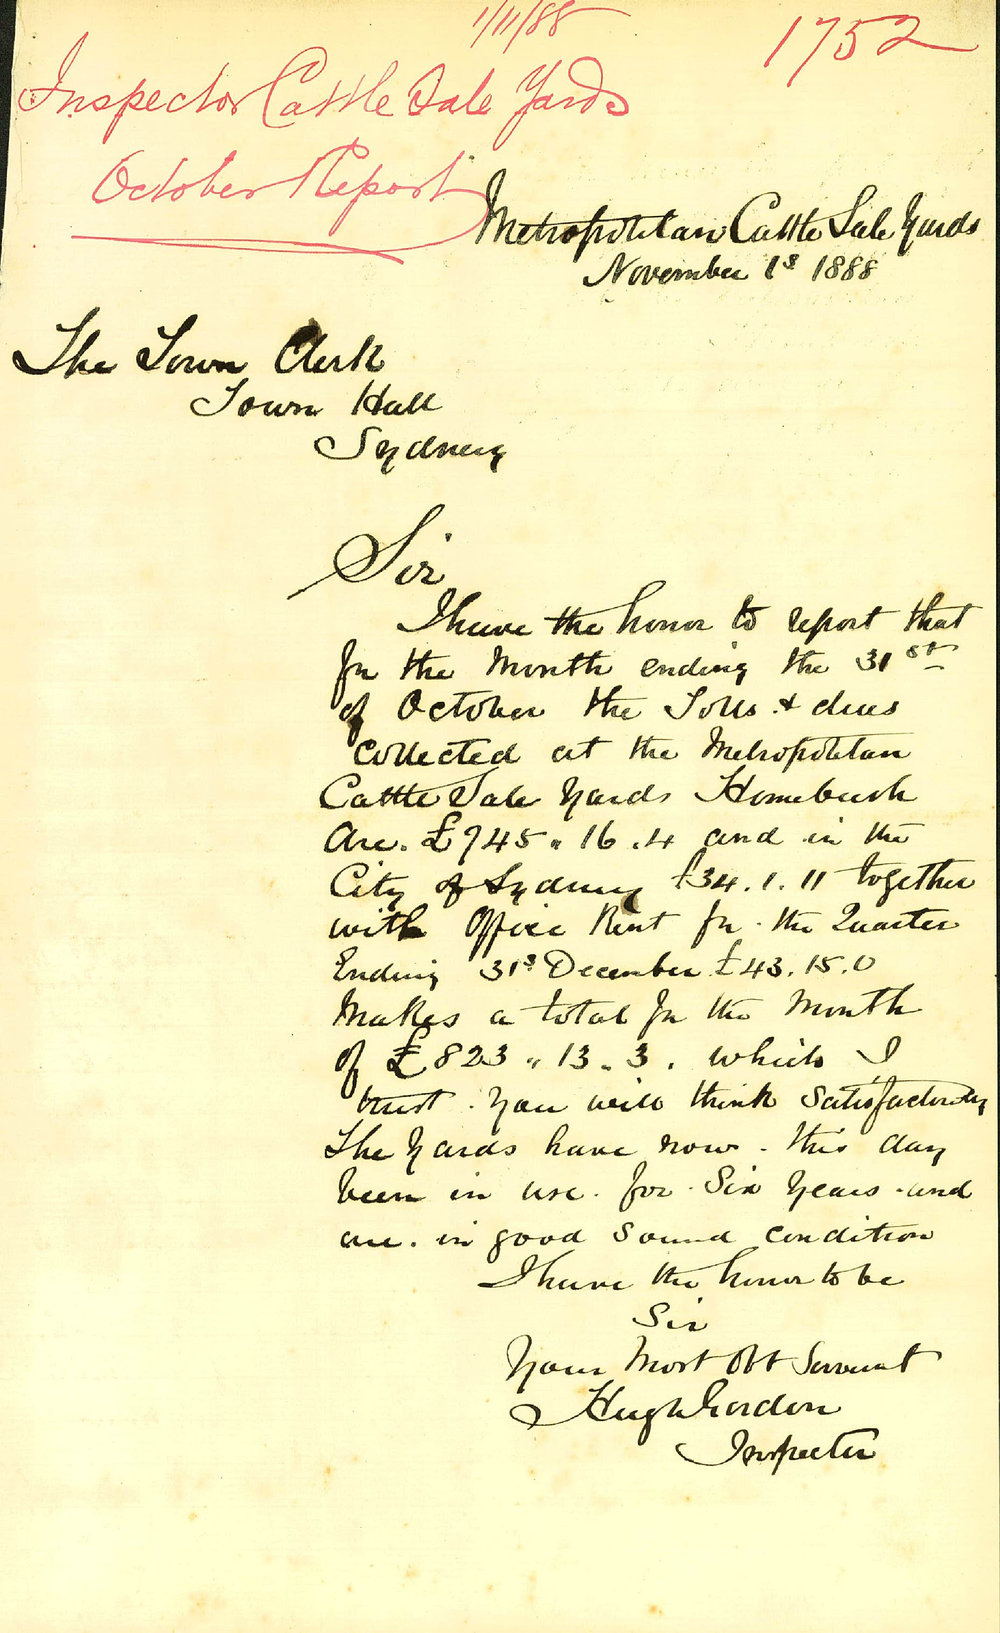 1/11/88
1752
Inspector Cattle Sale Yards
October Report
Metropolitan Cattle Sale Yards
November 1s 1888
The Town Clerk
Town Hall
Sydney
Sir
I have the honor to report that
for the Month ending the 31st
of October the Tolls & dues
Collected at the Metropolitan
Cattle Sale Yards Homebush
Are. £745 " 16 . 4 and in the
City of Sydney £34 . 1 . 11 together
with Office Rent for the Quarter
Ending 31s December £43 . 15 . 0
Makes a total for the Month
of £823 " 13 . 3 . which I
trust . You will think Satisfactory
The Yards have now . this day
been in use . for . Six Years . and
are . in good sound condition
I have the honor to be
Sir
Your Most Obt Servant
Hugh Gordon
Inspector